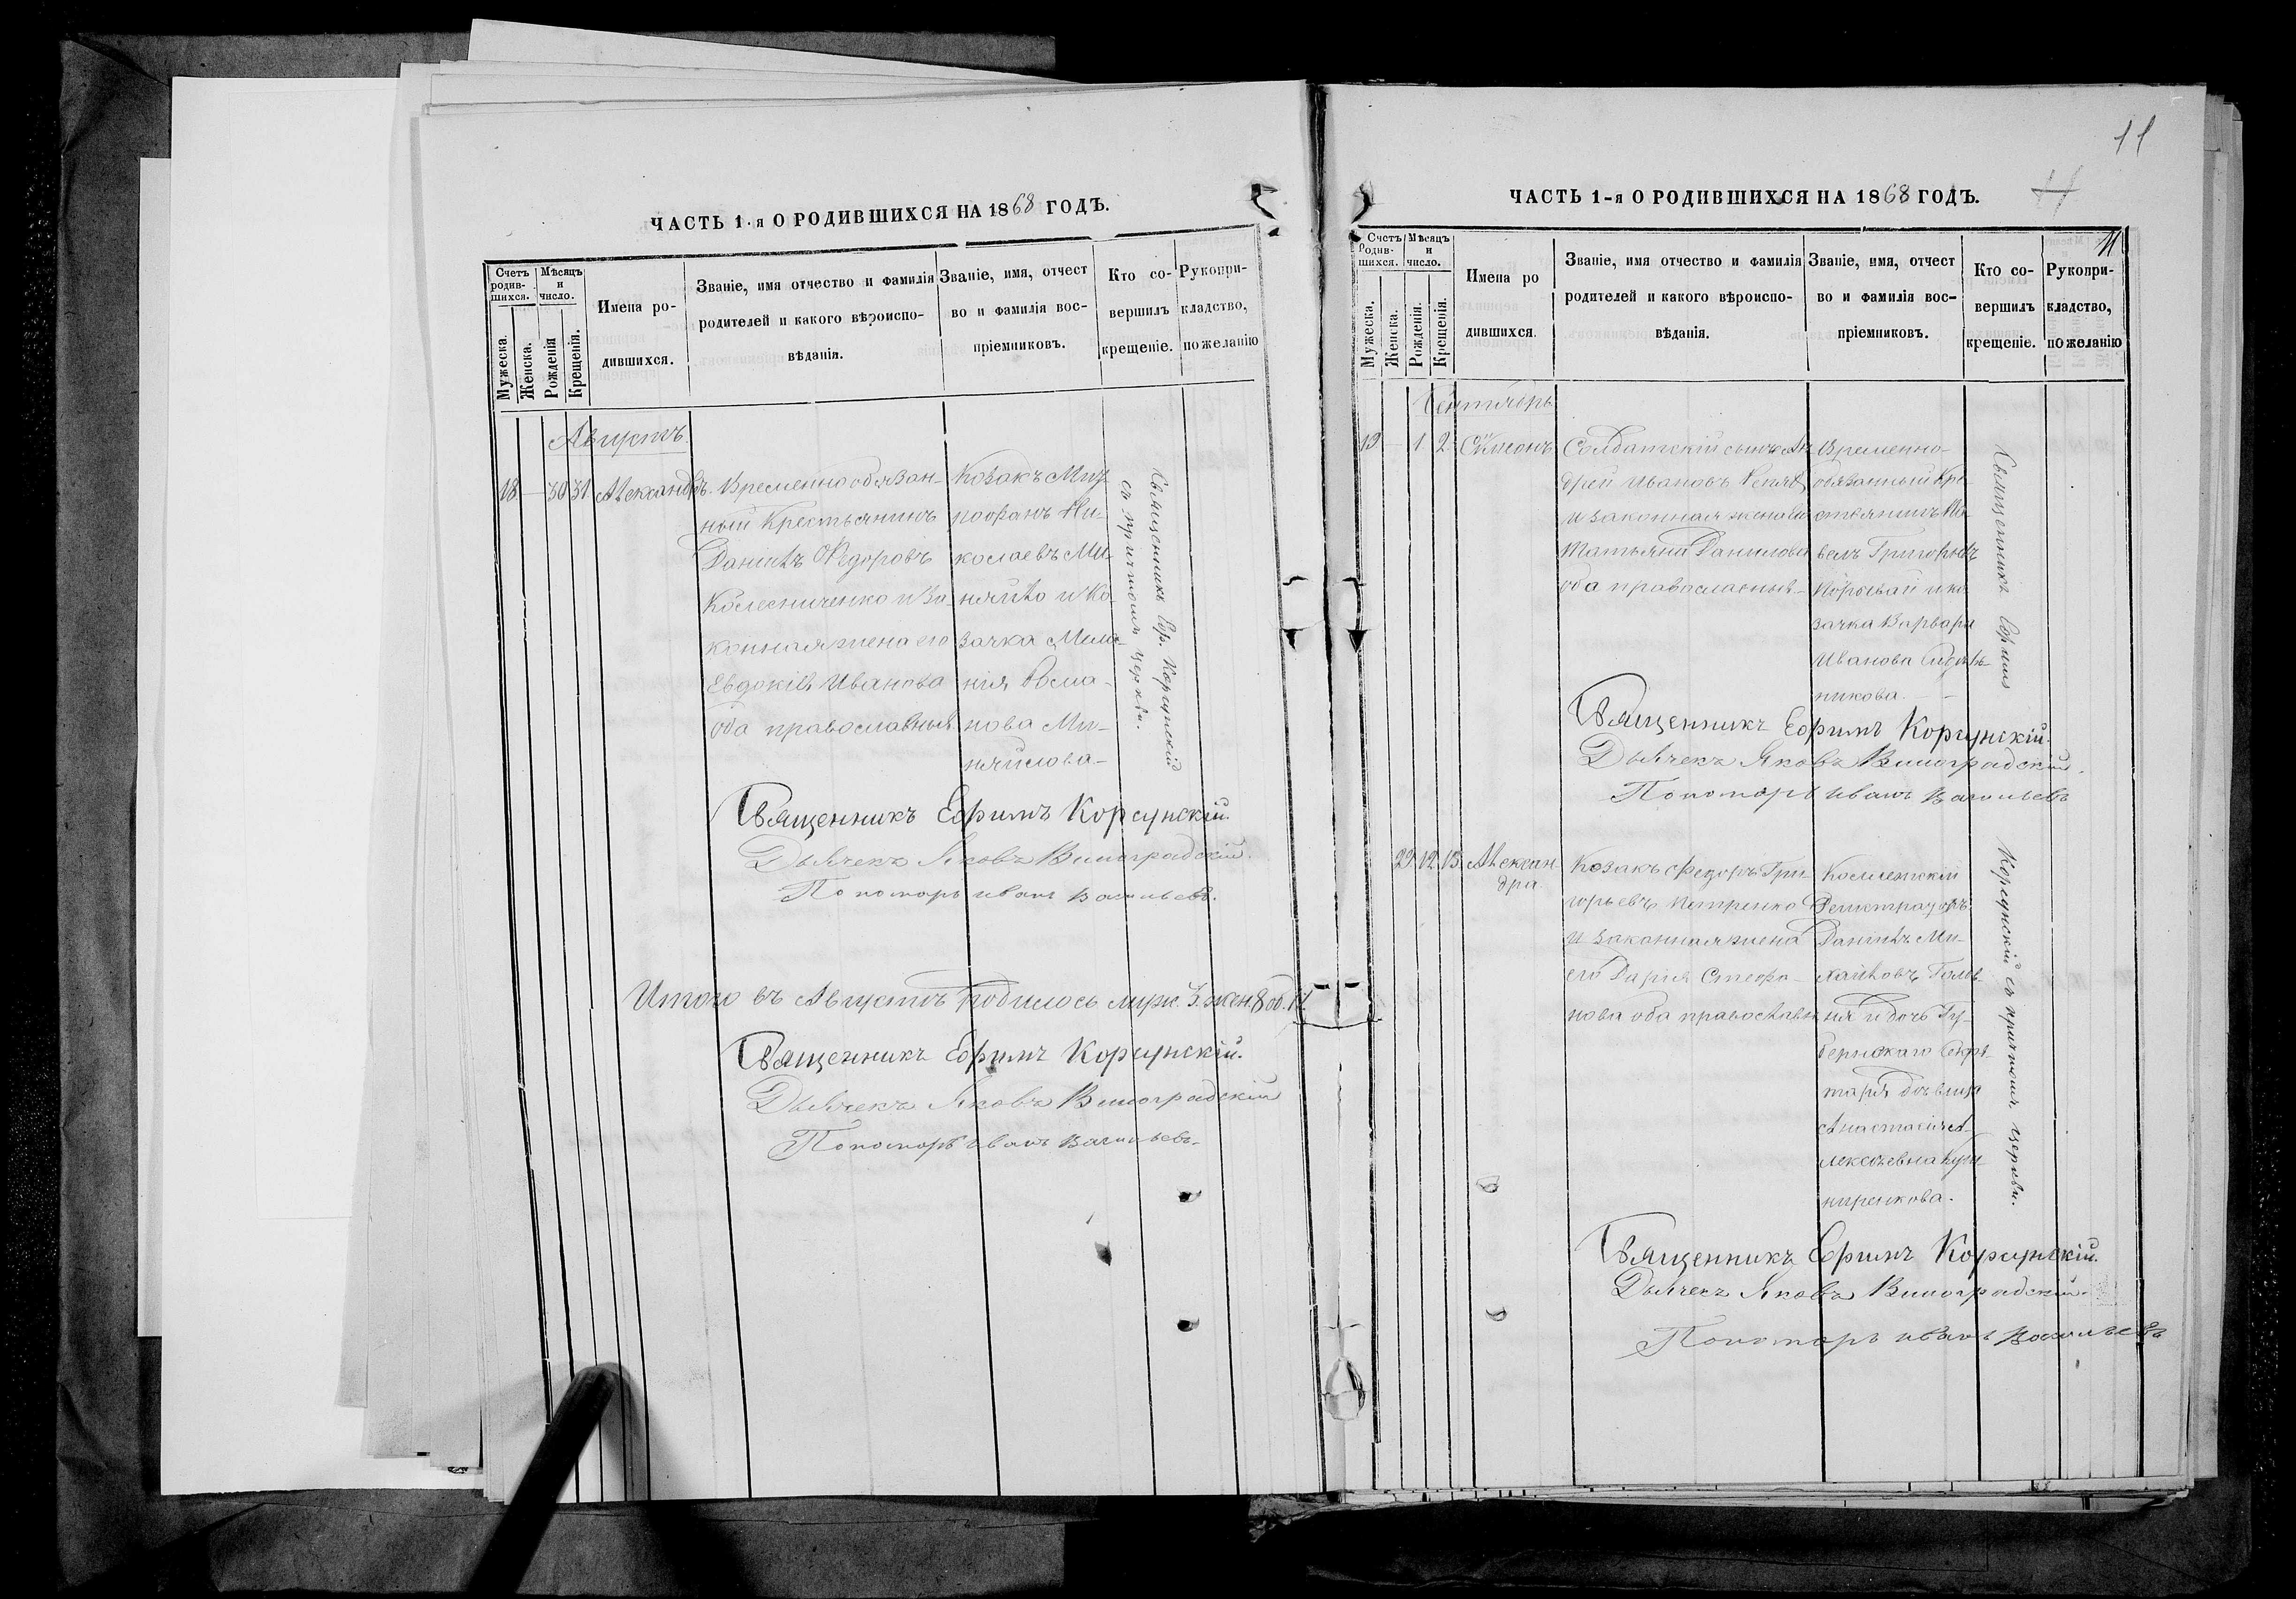 ЧАСТЬ 1-я О РОДИВШИХСЯ НА 1868 ГОДЪ.
Счетъ родив-шихся.
Мужеска.
Женска.
Мѣсяцъ и число.
Рожденія
Крещенія.
Имена ро-
дившихся.
Званіе, имя отчество и фамилія
родителей и какого вѣроиспо-
вѣданія.
Званіе, имя, отчест
во и фамилія вос-
пріемниковъ.
Кто со-
вершилъ
крещеніе.
Рукопри-
кладство,
по желанію
Августъ.
18 — 30 31 Александръ.
Временно обязан-
ный Крестьянинъ
Даніилъ Ѳедоровъ
Колесниченко и За-
конная жена его
Евдокія Иванова
оба православные
Козакъ Мит
рофанъ Ни-
колаевъ Ми-
няйло и Ко-
зачка Мела-
нія
нова Ми-
няйлова —
Священникъ Еф. Корсунскій
съ причтомъ церкви.
Священникъ Ефимъ Корсунскій.
Дьячекъ Яковъ Виноградскій.
Пономарь Иванъ Васильевъ.
Итого въ Августѣ родилось муж. 3. жен. 8 об. 11.
Священникъ Ефимъ Корсунскій.
Дьячекъ Яковъ Виноградскій
Пономарь Иванъ Васильевъ.
11
ЧАСТЬ 1-я О РОДИВШИХСЯ НА 1868 ГОДЪ.
11
Счетъ Родив-шихся.
Мужеска.
Женска.
Мѣсяцъ и число.
Рожденія.
Крещенія.
Имена ро
дившихся.
Званіе, имя отчество и фамилія
родителей и какого вѣроиспо-
вѣданія.
Званіе, имя, отчест
во и фамилія вос-
пріемниковъ.
Кто со-
вершилъ
крещеніе.
Рукопри-
кладство,
по желанію
Сентябрь
19 — 1 2 Симеонъ
Солдатскій сынъ Ан
дрей Ивановъ
и законная жена его
Татьяна Данилова
оба православные —
Временно-
обязанный Кре-
стьянинъ Па
велъ Григорьевъ
и ко
зачка Варвара
Иванова
никова. —
Священникъ Ефимъ
Священникъ Ефимъ Корсунскій.
Дьячекъ Яковъ Виноградскій.
Пономарь Иванъ Васильевъ
22 12 13 Алексан-
дра.
Козакъ Федоръ Гри
горьевъ Петренко
и законная жена
его Дарія Стефа-
нова оба православн
Коллежскій
Регистраторъ
Даніилъ Ми-
хайловъ
ня и дочь Гу-
бернскаго Секре-
таря дѣвица
Анастасія А
лексѣевна
ниренкова.
Корсунскій съ причтомъ церкви.
Священникъ Ефимъ Корсунскій.
Дьячекъ Яковъ Виноградскій.
Пономарь Иванъ Васильевъ